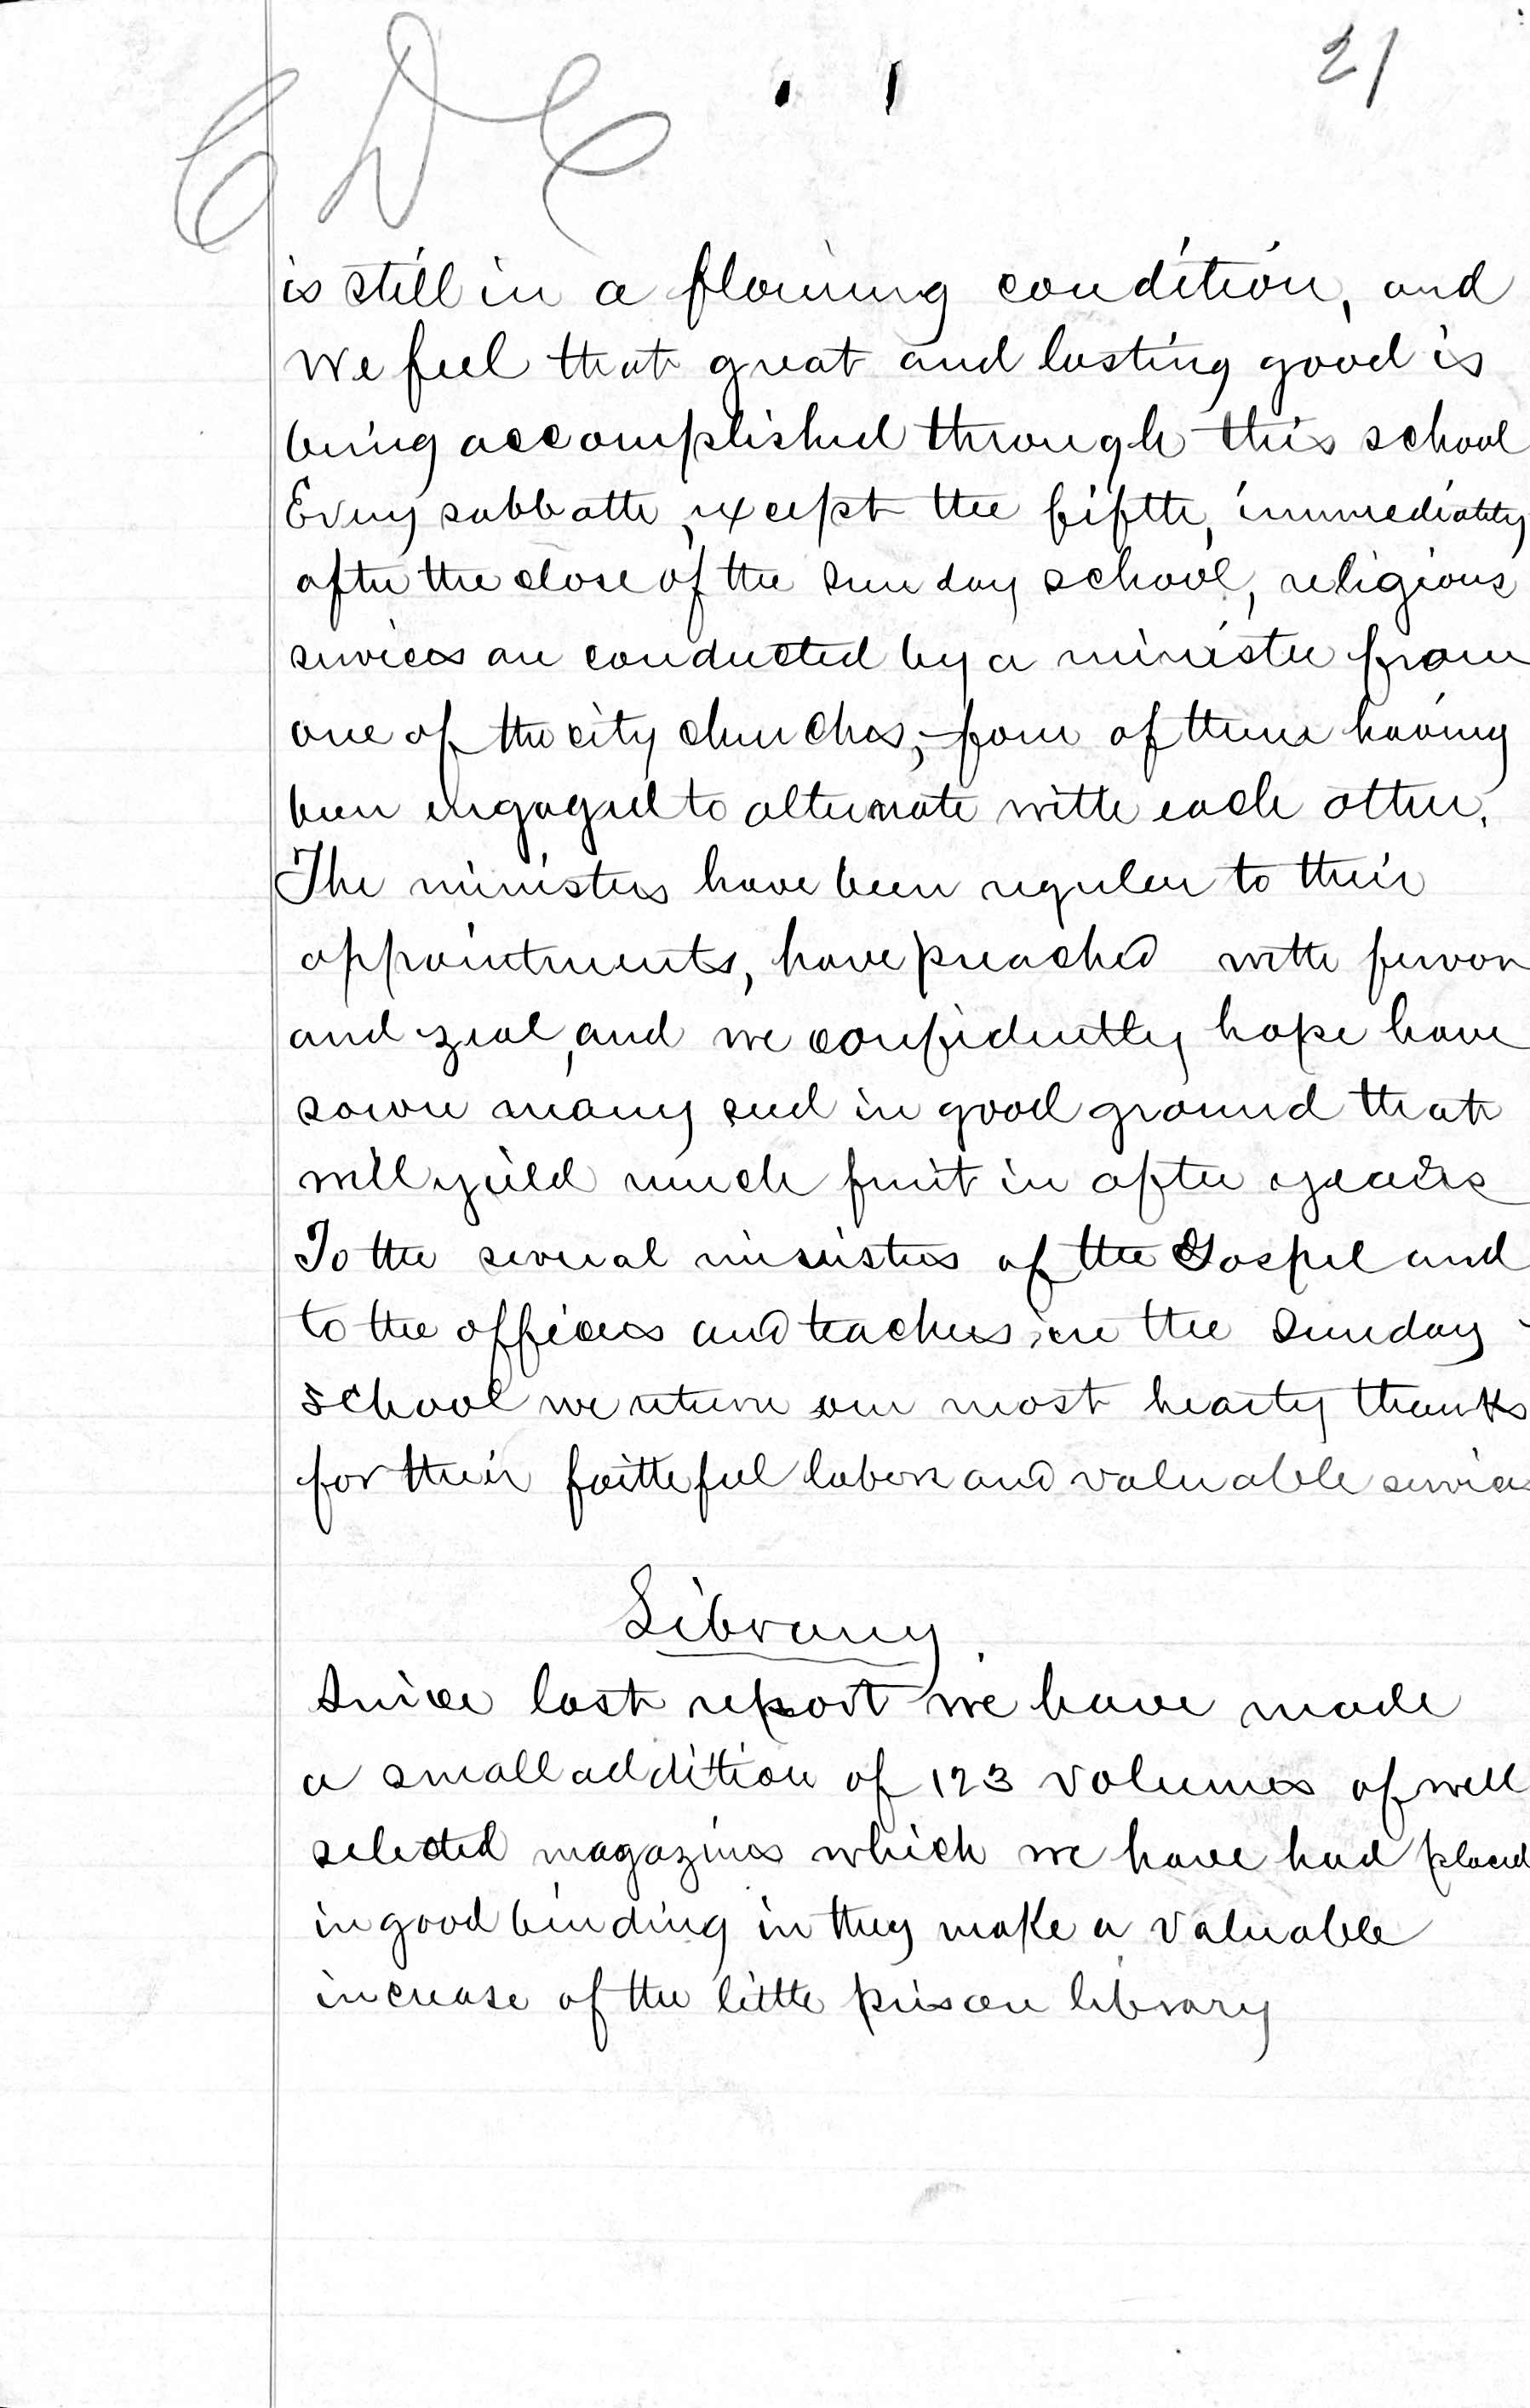 21
is still in a flowing condition, and
we feel that great and lasting good is
being accomplished through this school
Every sabbath, except the fifth, immediately
after the close of the Sunday school, religious
services are conducted by a minister from
one of the city churches, four of them having
been engaged to alternate with each other.
The ministers have been regular to their
appointments, have preached with fervor
and zeal, and we confidently hope have
sown many seed in good ground that
will yield much fruit in after years
To the several ministers of the Gospel and
to the officers and teachers in the Sunday-
school we return our most hearty thanks
for their faithful labors and valuable services
Library
Since last report we have made
a small addition of 123 volumes of well
selected magazines which we have had placed
in good binding in they make a valuable
increase of the little prison library